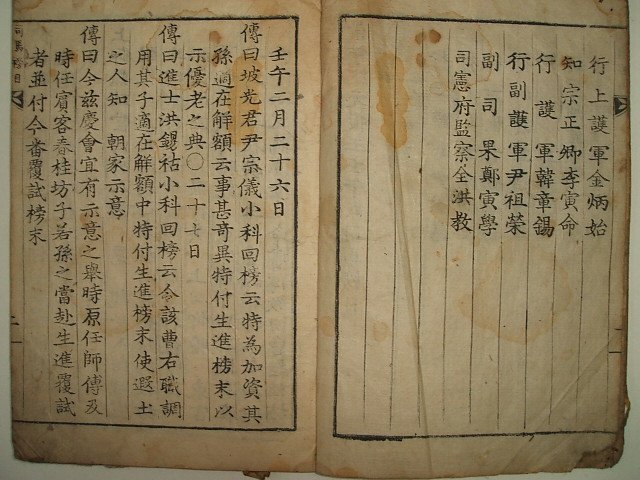 行上護軍金炳始
知宗正卿李寅命
行護軍韓章錫
行副護軍尹祖榮
副司果鄭寅學
司憲府監察全洪敎
壬午二月二十六日
傳曰坡光君尹宗儀小科回榜云特為加資其
孫適在解額云事甚奇異特付生進榜末以
示優老之典○二十七日
傳曰進士洪錫祜小科回榜云令該曹右職調
用其子適在解額中特付生進榜末使遐土
之人知 朝家示意
傳曰今玆慶會宜有示意之擧時原任師傅及
時任賓客春桂坊子若孫之當赴生進覆試
者並付今番覆試榜末
司馬榜目
一